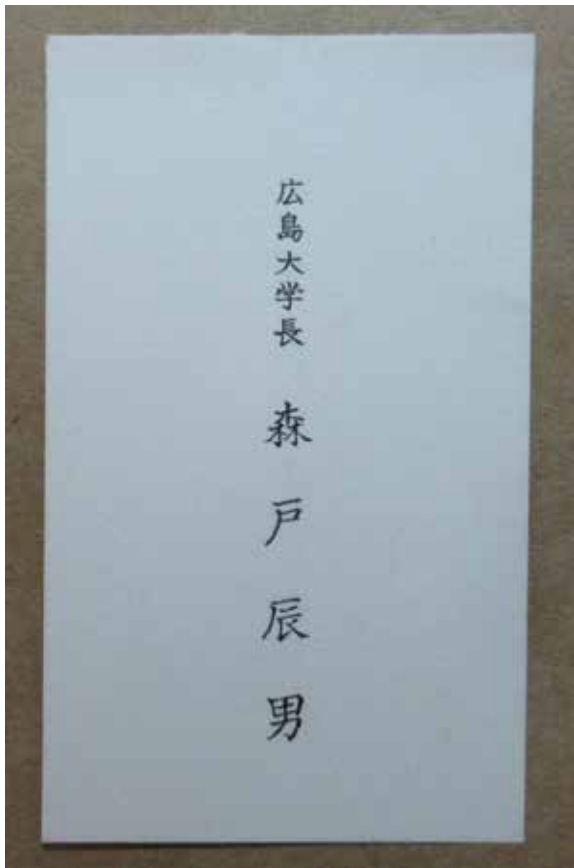 広島大学長 森戸辰男